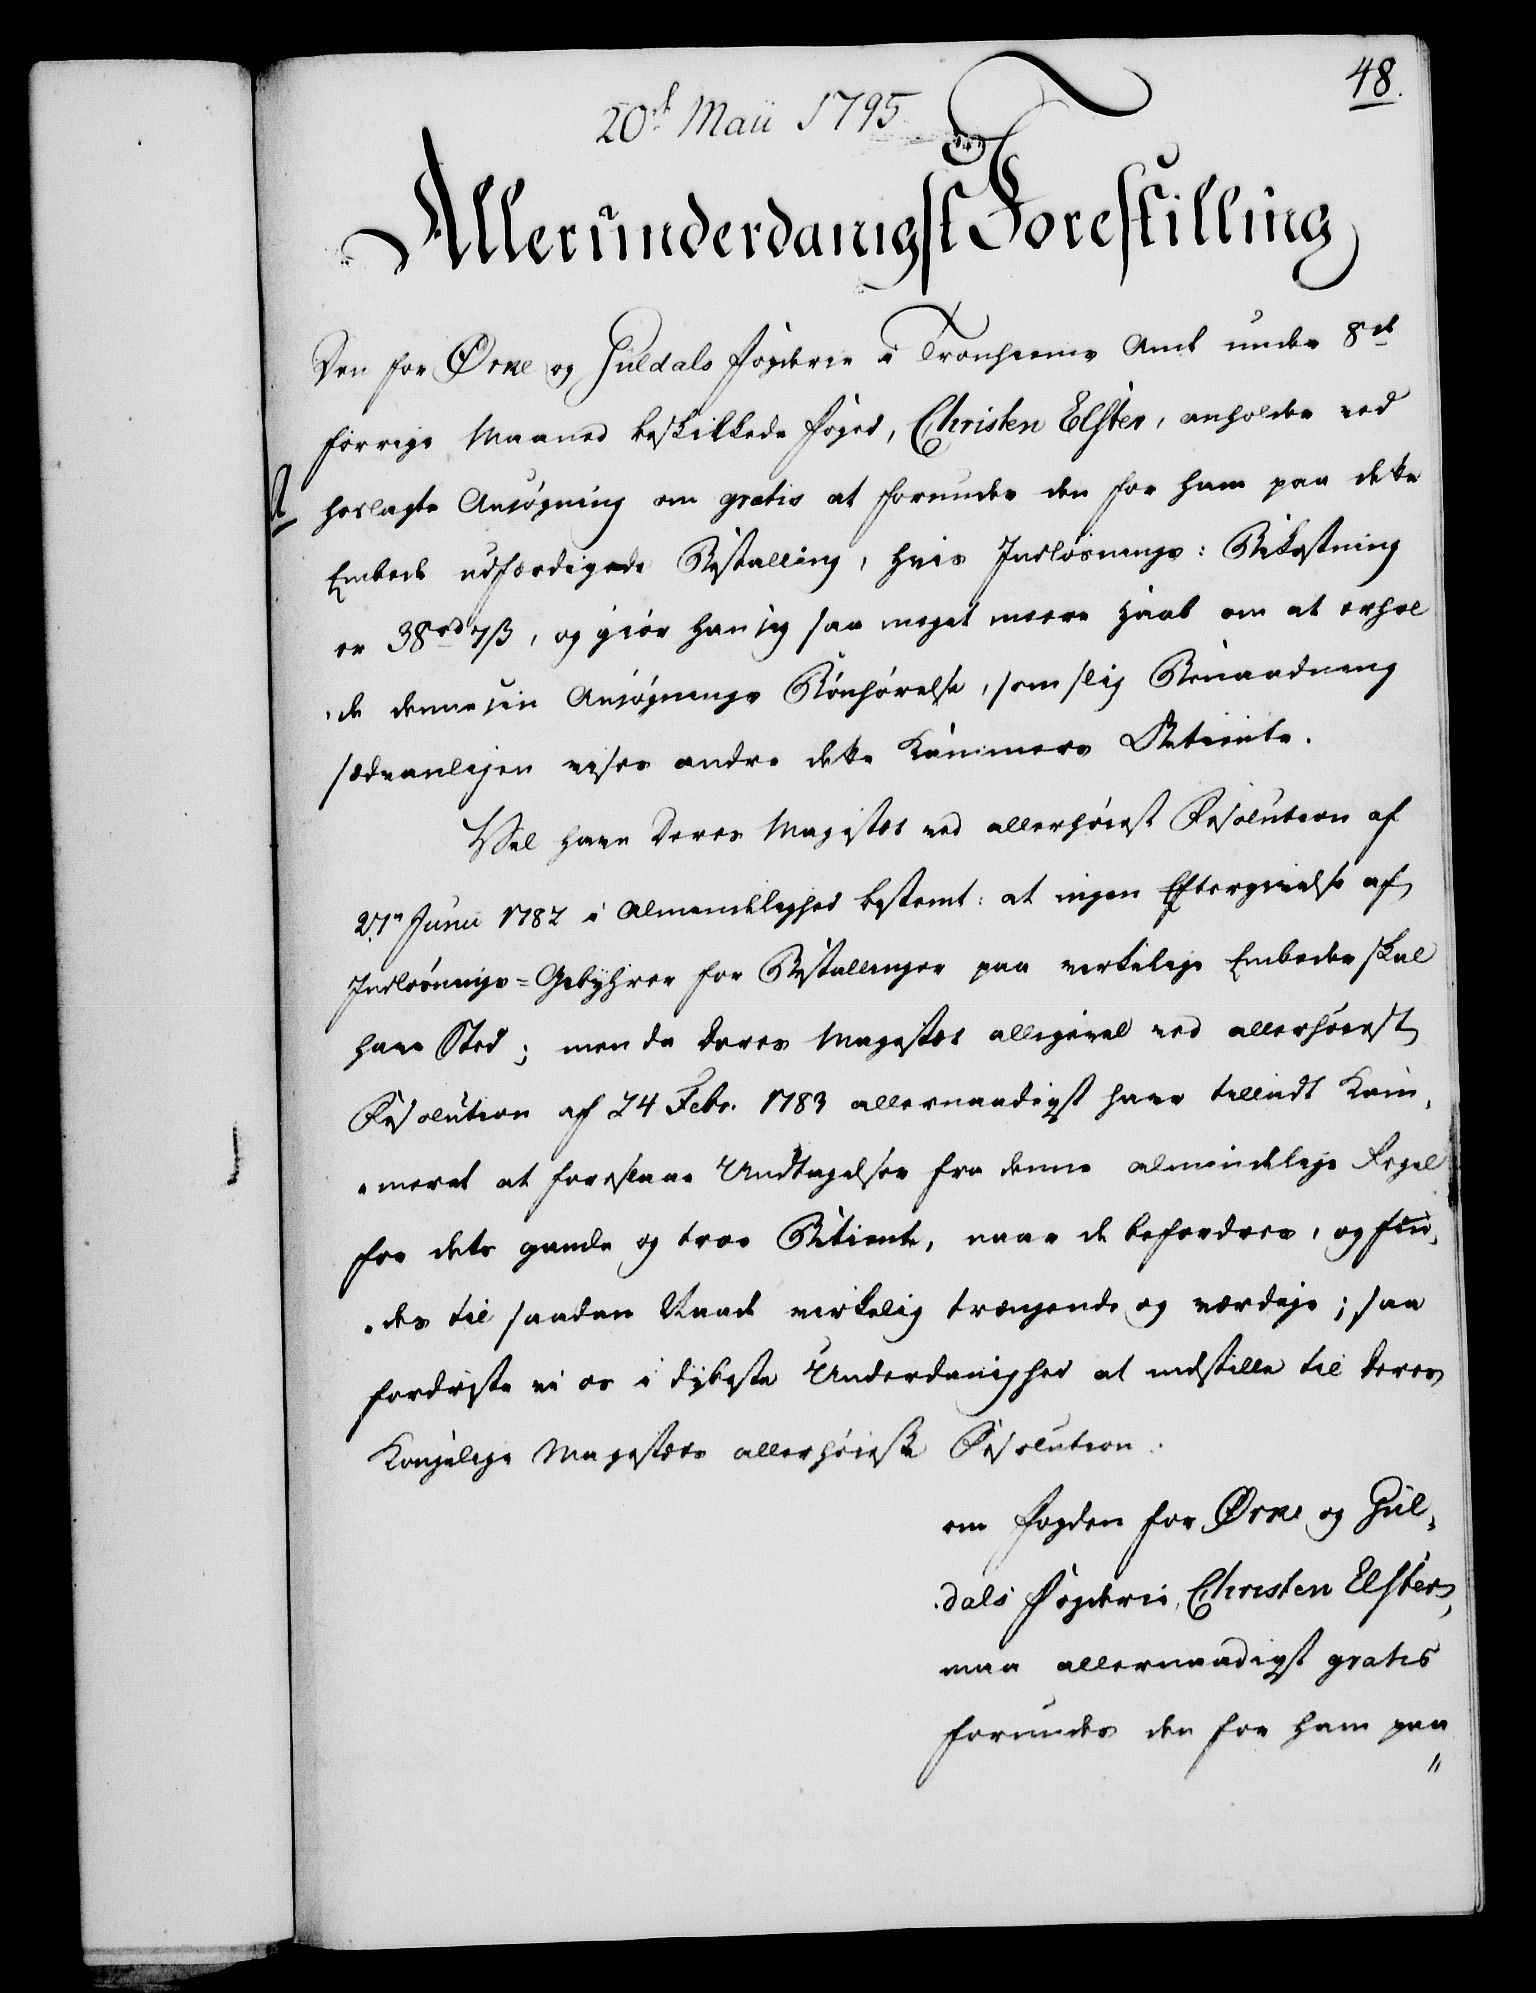 48.
20d Maii 1795
Allerunderdanigst Forestilling
Den for Ørke og Guldals Fogderie i Tronhiems Amt under 8de
forrige Maaned beskikkede Foged, Christen Elster, anholder ved
A
hoslagte Ansøgning om gratis at forundes den for ham paa dette
Embede udfærdigede Bestalling, hvis Indløsnings: Bekostning
er 38rd 7ß, og giør han sig saa meget meere Haab om at erhol
de denne sin Ansøgnings Bønhørelse, som slig Benaadning
sædvanligen vises andre dette Kammers Betiente.
Vel have Deres Majestæt ved allerhøiest Resolution af
27n Junii 1782 i Almindelighed bestemt: at ingen Eftergivelse af
Indløsnings-Gebyhrer for Bestallinger paa virkelige Embeder skal
have Sted; men da Deres Majestæt alligevel ved allerhøiest
Resolution af 24 Febr. 1783 allernaadigst have tilladt Kam,
meret at foreslaae Undtagelser fra denne almindelige Regel
for dets gamle og troe Betiente, naar de befordres, og fin,
des til saadan Naade virkelig trængende og værdige; saa
fordriste vi os i dybeste Underdanighed at indstille til Deres
Kongelige Majestæts allerhøieste Resolution:
om Fogden for Ørke og Gul,
dals Fogderie, Christen Elster,
maa allernaadigst gratis
forundes den for ham paa
"